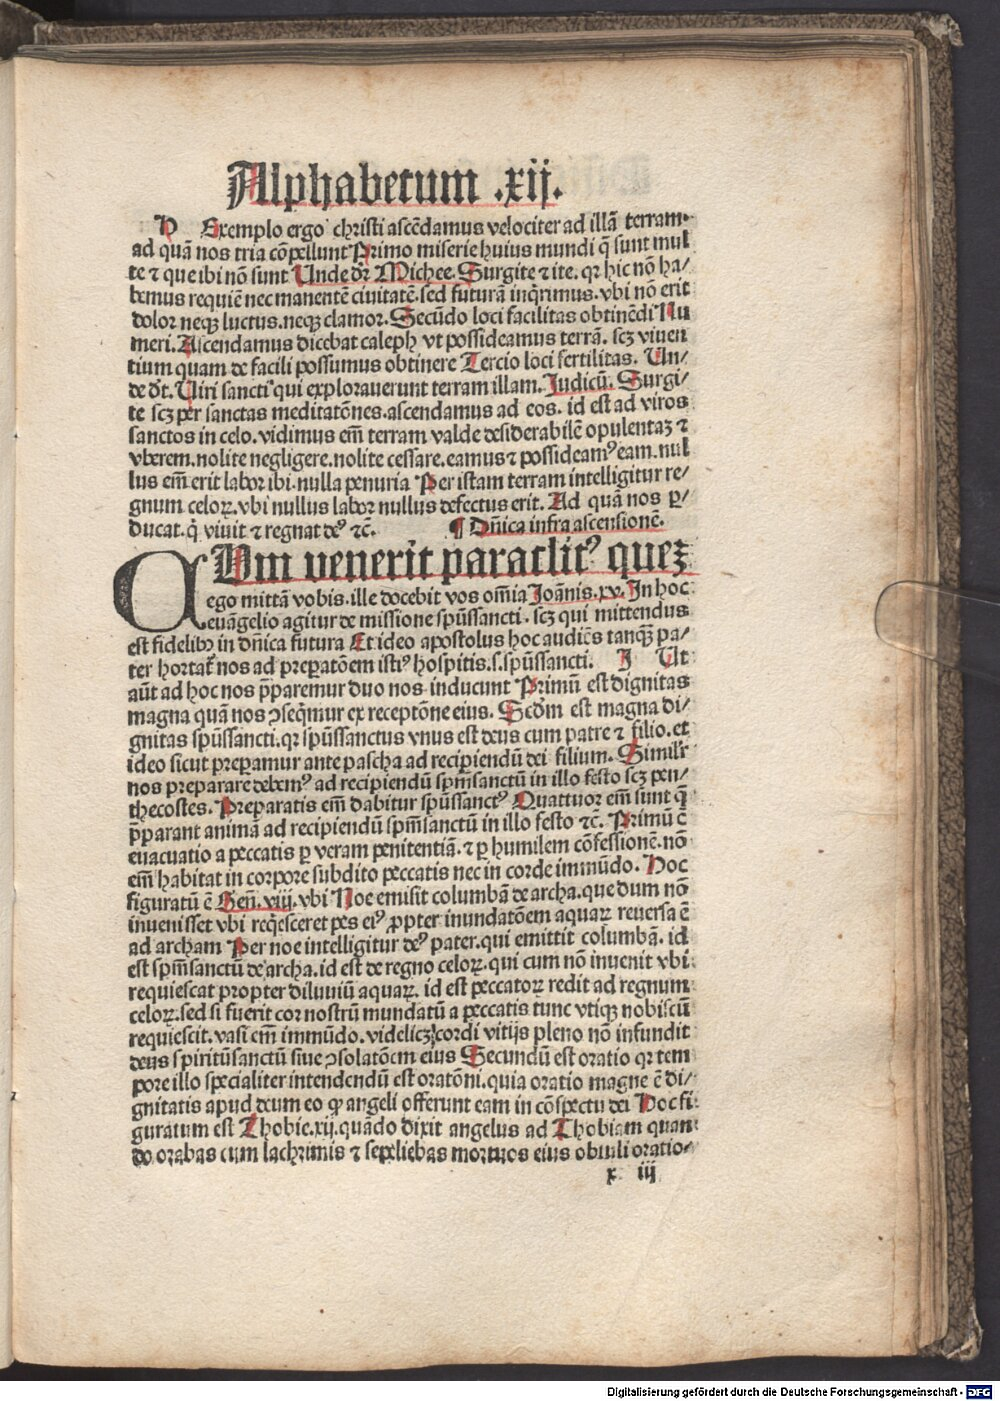 Alphabetum .xij.
H Exemplo ergo christi ascēdamus velociter ad illā terram.
ad quā nos tria cōpellunt Primo miserie huius mundi q̄ sunt mul
te ⁊ que ibi nō sunt Unde dr̄ Michee. Surgite ⁊ ite. qꝛ hic nō ha/
bemus requiē nec manentē ciuitatē. sed futurā inq̄rimus. vbi nō erit
dolor neqꝫ luctus. neqꝫ clamor. Secūdo loci facilitas obtinēdi Nu
meri. Ascendamus dicebat caleph vt possideamus terrā. scꝫ viuen
tium quam de facili possumus obtinere Tercio loci fertilitas. Un/
de dt̄. Uiri sancti qui explorauerunt terram illam. Judicū. Surgi/
te scꝫ per sanctas meditatōnes. ascendamus ad eos. id est ad viros
sanctos in celo. vidimus em̄ terram valde desiderabilē opulentaꝫ ⁊
vberem. nolite negligere. nolite cessare. eamus ⁊ possideamꝰ eam. nul
lus em̄ erit labor ibi. nulla penuria Per istam terram intelligitur re/
gnum celoꝝ. vbi nullus labor nullus defectus erit. Ad quā nos ꝑ/
ducat. q̇ viuit ⁊ regnat deꝰ ⁊c̄. ¶ Dn̄ica infra ascensionē.
CUm venerit paraclitꝰ queꝫ
ego mittā vobis. ille docebit vos om̄ia Joānis. xv. In hoc
euāgelio agitur de missione spūssancti. scꝫ qui mittendus
est fidelibꝫ in dn̄ica futura Et ideo apostolus hoc audiēs tanqꝫ pa/
ter hortat̄ nos ad preꝑatōem istiꝰ hospitis. s. spūssancti. I Ut
aūt ad hoc nos p̄paremur duo nos inducunt Primū est dignitas
magna quā nos ꝯseq̄mur ex receptōne eius. Scd̄m est magna di/
gnitas spūssancti. qꝛ spūssanctus vnus est deus cum patre ⁊ filio. et
ideo sicut preꝑamur ante pascha ad recipiendū dei filium. Similr̄
nos preparare debemꝰ ad recipiendū spm̄sanctū in illo festo scꝫ pen/
thecostes. Preparatis em̄ dabitur spūssanctꝰ Quattuor em̄ sunt q̄
p̄parant animā ad recipiendū spm̄sanctū in illo festo ⁊c̄. Primū ē
euacuatio a peccatis ꝑ veram penitentiā. ⁊ ꝑ humilem cōfessionē. nō
em̄ habitat in corpore subdito peccatis nec in corde immūdo. Hoc
figuratū ē Gen̄. viij. vbi Noe emisit columbā de archa. que dum nō
inuenisset vbi req̇esceret pes eiꝰ ꝓpter inundatōem aquaꝝ reuersa ē
ad archam Per noe intelligitur deꝰ pater. qui emittit columbā. id
est spm̄sanctū de archa. id est de regno celoꝝ. qui cum nō inuenit vbi
requiescat propter diluuiū aquaꝝ. id est peccatoꝝ redit ad regnum
celoꝝ. sed si fuerit cor nostrū mundatū a peccatis tunc vtiqꝫ nobiscū
requiescit. vasi em̄ immūdo. videlicꝫ cordi vitijs pleno nō infundit
deus spiritūsanctū siue ꝯsolatōem eius Secundū est oratio qꝛ tem
pore illo specialiter intendendū est oratōni. quia oratio magne ē di/
gnitatis apud deum eo ꝙ angeli offerunt eam in cōspectu dei Hoc fi
guratum est Thobie. xij. quādo dixit angelus ad Thobiam quan
do orabas cum lachrimis ⁊ sepeliebas mortuos eius obtuli oratio/
x iij
Digitalisierung gefördert durch die Deutsche Forschungsgemeinschaft - DFG